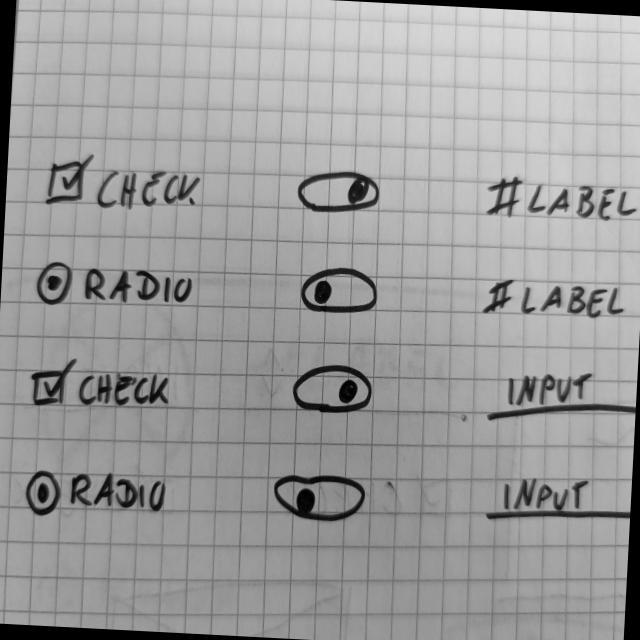 CHECK #LABEL
RADIO #LABEL
CHECK INPUT
RADIO INPUT